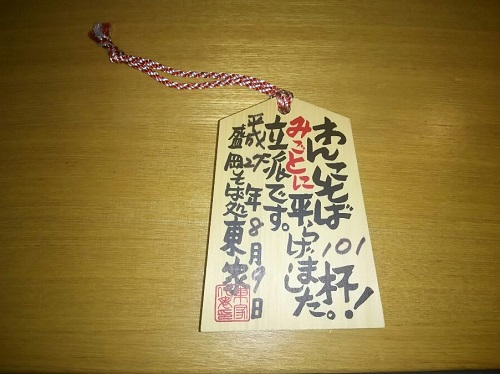 わんこそば101杯!
みごとに平らげました。
立派です。
平成27年8月9日
盛岡そば処東家